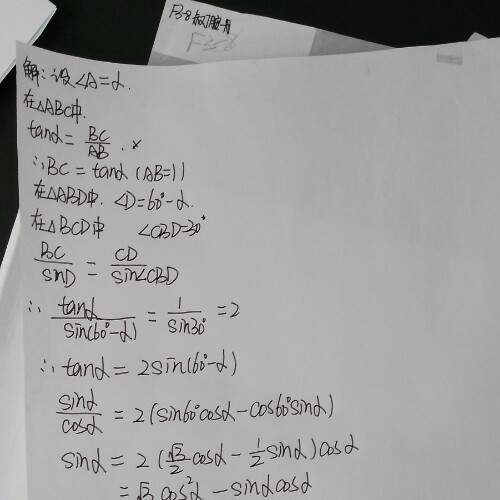 F38
解：设∠A=α.
在△ABC中.
tanα = BC/AB .
∴BC = tanα (AB=1)
在△ABD中. ∠D=60°-α.
在△BCD中 ∠CBD=30°
BC/sinD = CD/sin∠CBD
∴ tanα/sin(60°-α) = 1/sin30° = 2
∴ tanα = 2sin(60°-α)
sinα/cosα = 2(sin60°cosα-cos60°sinα)
sinα = 2(√3/2 cosα - 1/2 sinα)cosα
= √3 cos²α - sinαcosα